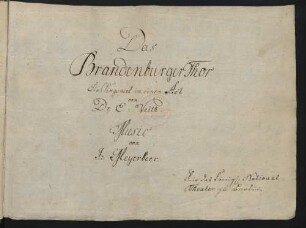 Das
Brandenburger Thor
Ein Singspiel in einem Act
von
Dr. E. Veith
Music
von
J. Meyerbeer
Für das Königl. National-
Theater zu Berlin